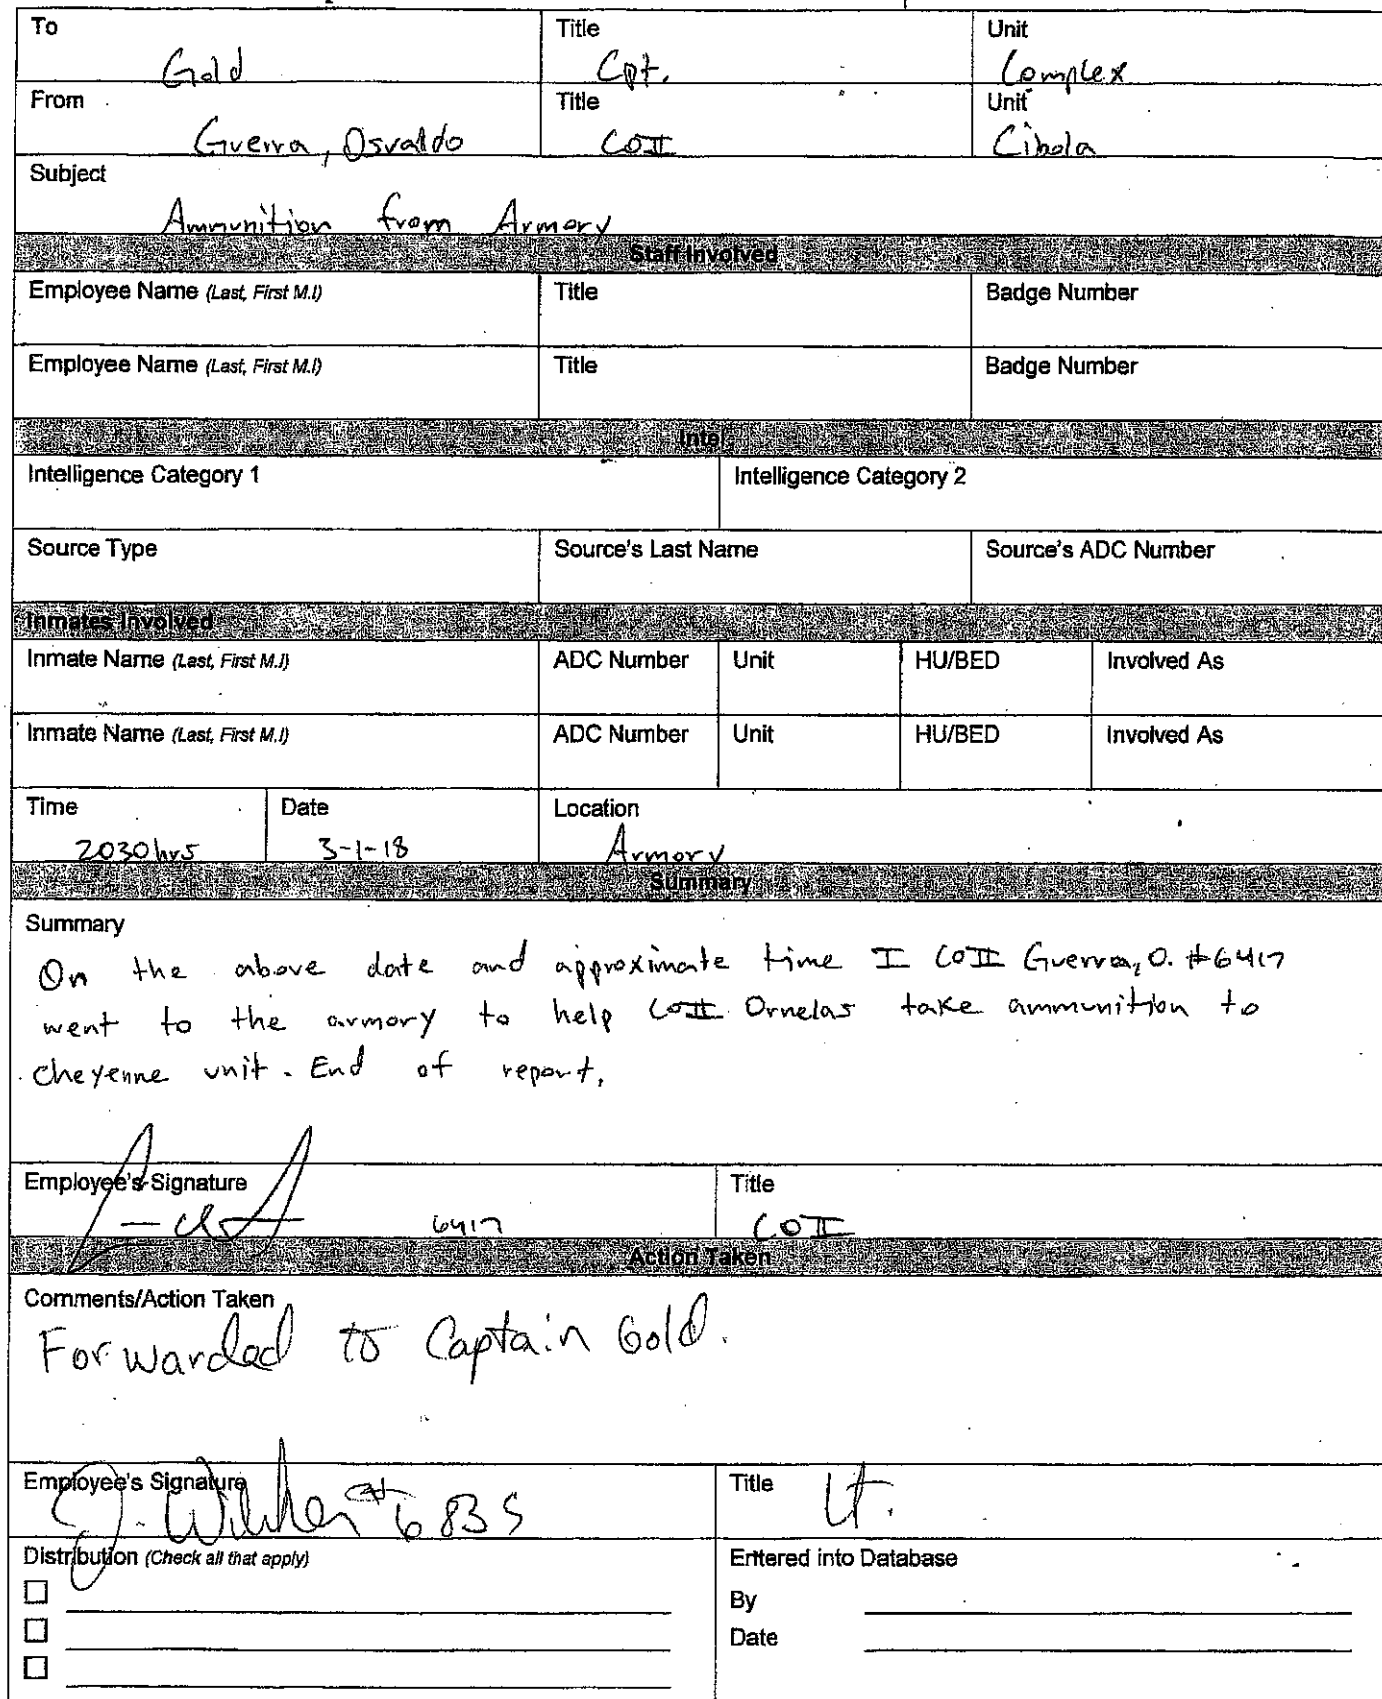 To Title Unit
Gold Cpt. Complex
From Title Unit
Guerra, Osvaldo COII Cibola
Subject
Ammunition from Armory
Staff Involved
Employee Name (Last, First M.I) Title Badge Number
Employee Name (Last, First M.I) Title Badge Number
Intel
Intelligence Category 1 Intelligence Category 2
Source Type Source's Last Name Source's ADC Number
Inmates Involved
Inmate Name (Last, First M.I) ADC Number Unit HU/BED Involved As
Inmate Name (Last, First M.I) ADC Number Unit HU/BED Involved As
Time Date Location
2030hrs 3-1-18 Armory
Summary
Summary
On the above date and approximate time I COII Guerra, O. #6417
went to the armory to help COII Ornelas take ammunition to
cheyenne unit. End of report.
Employee's Signature Title
6417 COII
Action Taken
Comments/Action Taken
Forwarded to Captain Gold.
Employee's Signature Title
J. #6835 Lt.
Distribution (Check all that apply) Entered into Database
By
Date